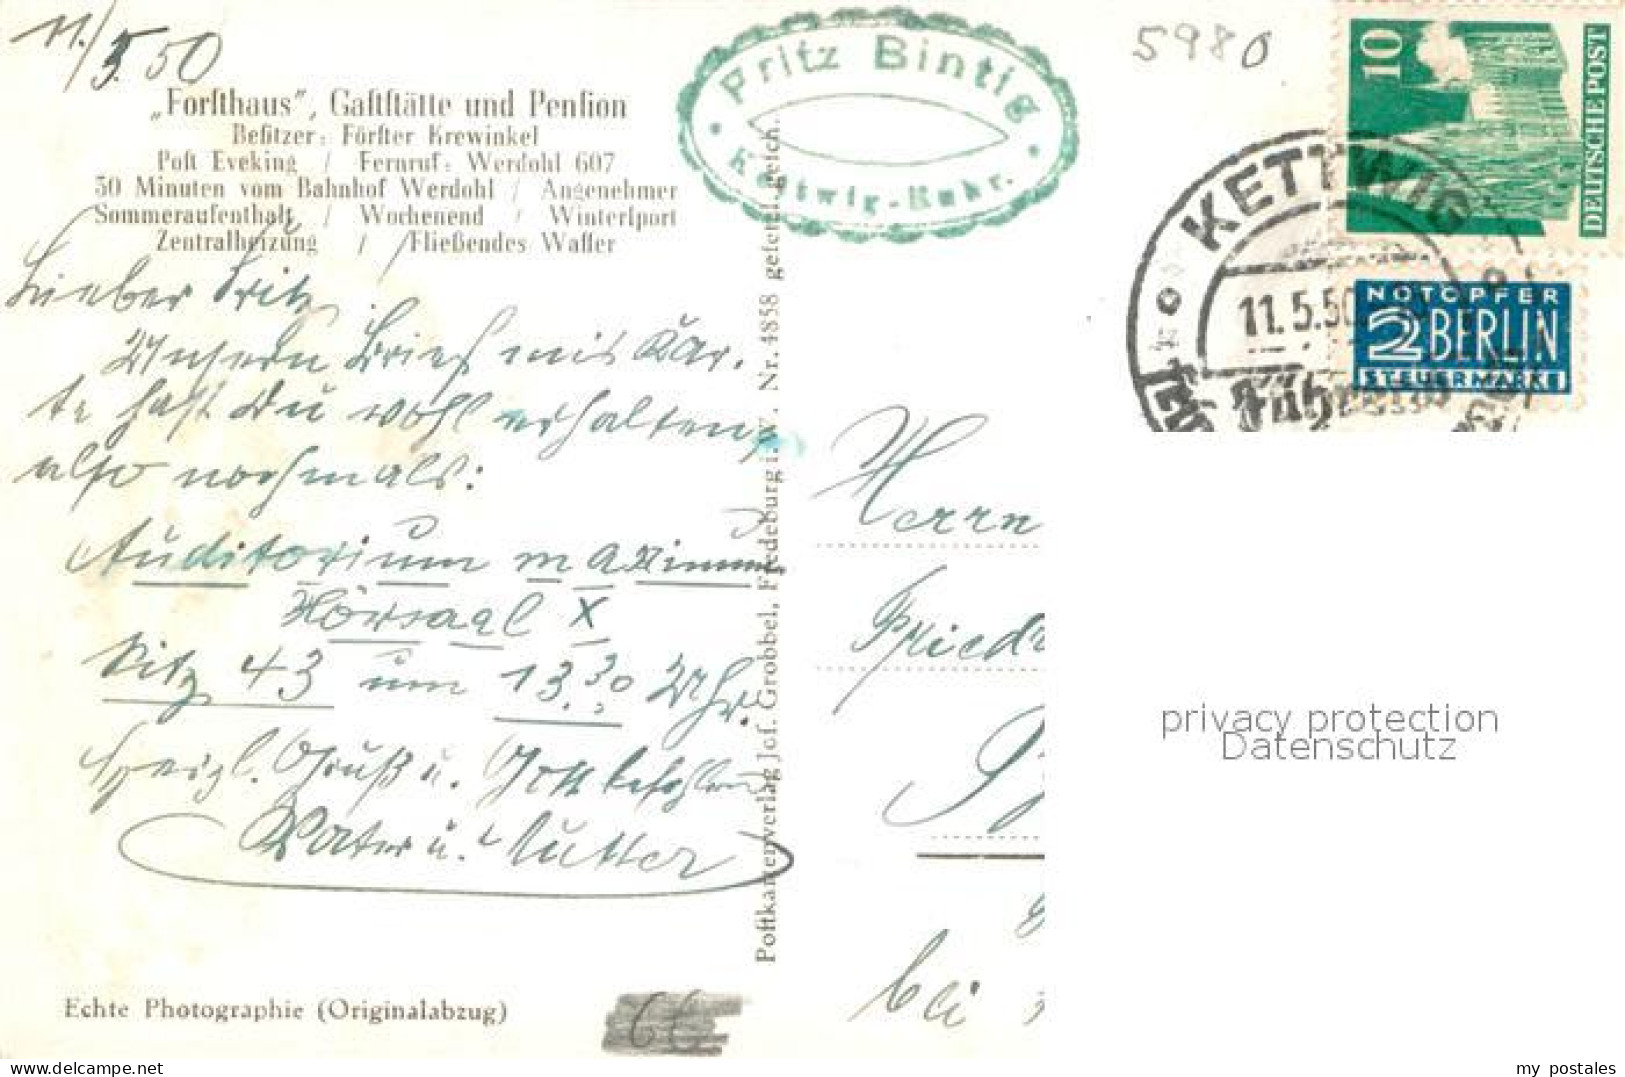 11./5.50
„Forsthaus", Gaststätte und Pension
Besitzer: Förster Krewinkel
Post Eveking / Fernruf: Werdohl 607
30 Minuten vom Bahnhof Werdohl / Angenehmer
Sommeraufenthalt / Wochenend / Wintersport
Zentralheizung / Fließendes Wasser
Lieber Fritz,
Unsern Brief mit Kar-
te hast Du wohl erhalten,
also nochmals:
Auditorium maximum
Hörsaal X
Sitz 43 um 13.30 Uhr.
Herzl. Gruß u. Gott befohlen
Vater u. Mutter
Echte Photographie (Originalabzug)
66
Postkartenverlag Jos. Grobbel, Fredeburg i. W. Nr. 4858 gesetzl. gesch.
Fritz Bintig
Kettwig-Ruhr.
5980
10
DEUTSCHE POST
KETTWIG
11.5.50
NOTOPFER
2 BERLIN
STEUERMARKE
Herrn
Friedr
bei
privacy protection
Datenschutz
www.mypostales.com.net
my_postales